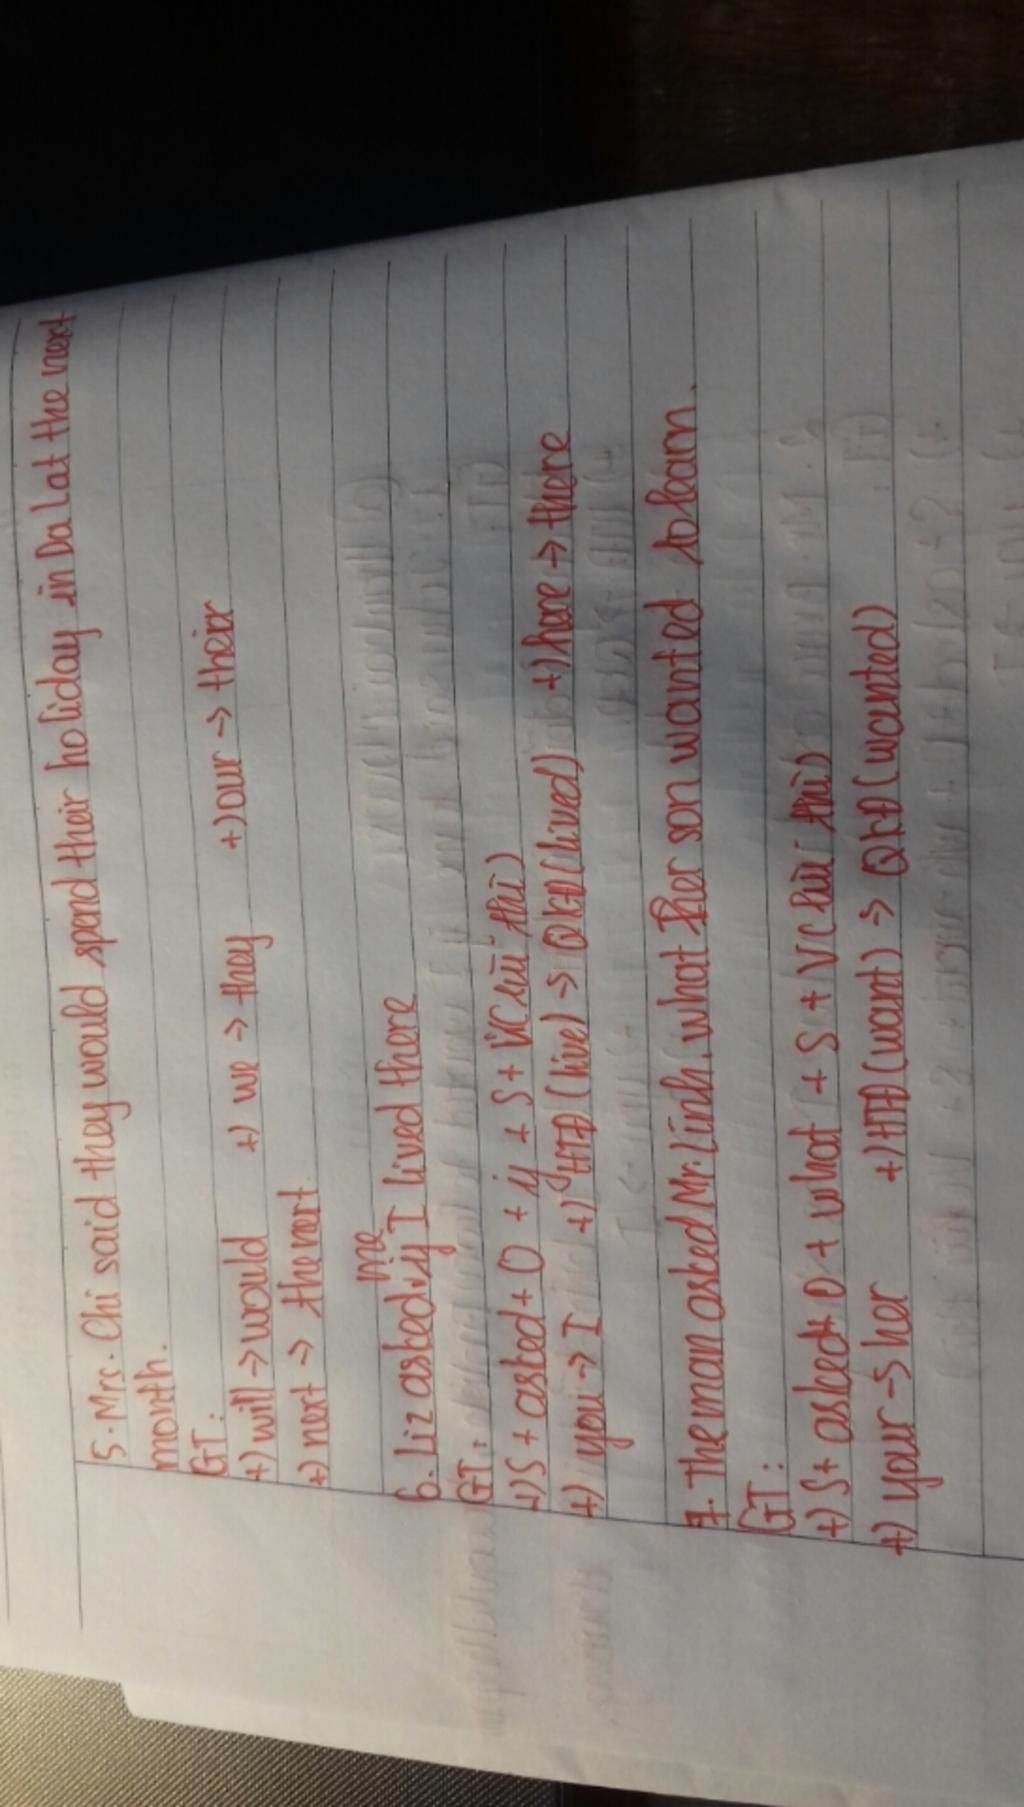 5. Mrs. Chi said they would spend their holiday in Da Lat the next
month.
GT:
+) will -> would +) we -> they +) our -> their
+) next -> the next
me
6. Liz asked if I lived there
GT:
+) S + asked + O + if + S + V( lùi thì)
+) you -> I +) HTĐ (live) -> QKĐ (lived) +) here -> there
7. The man asked Mr. Linh what her son wanted to learn.
GT:
+) S + asked + O + what + S + V( lùi thì)
+) your -> her +) HTĐ (want) -> QKĐ (wanted)